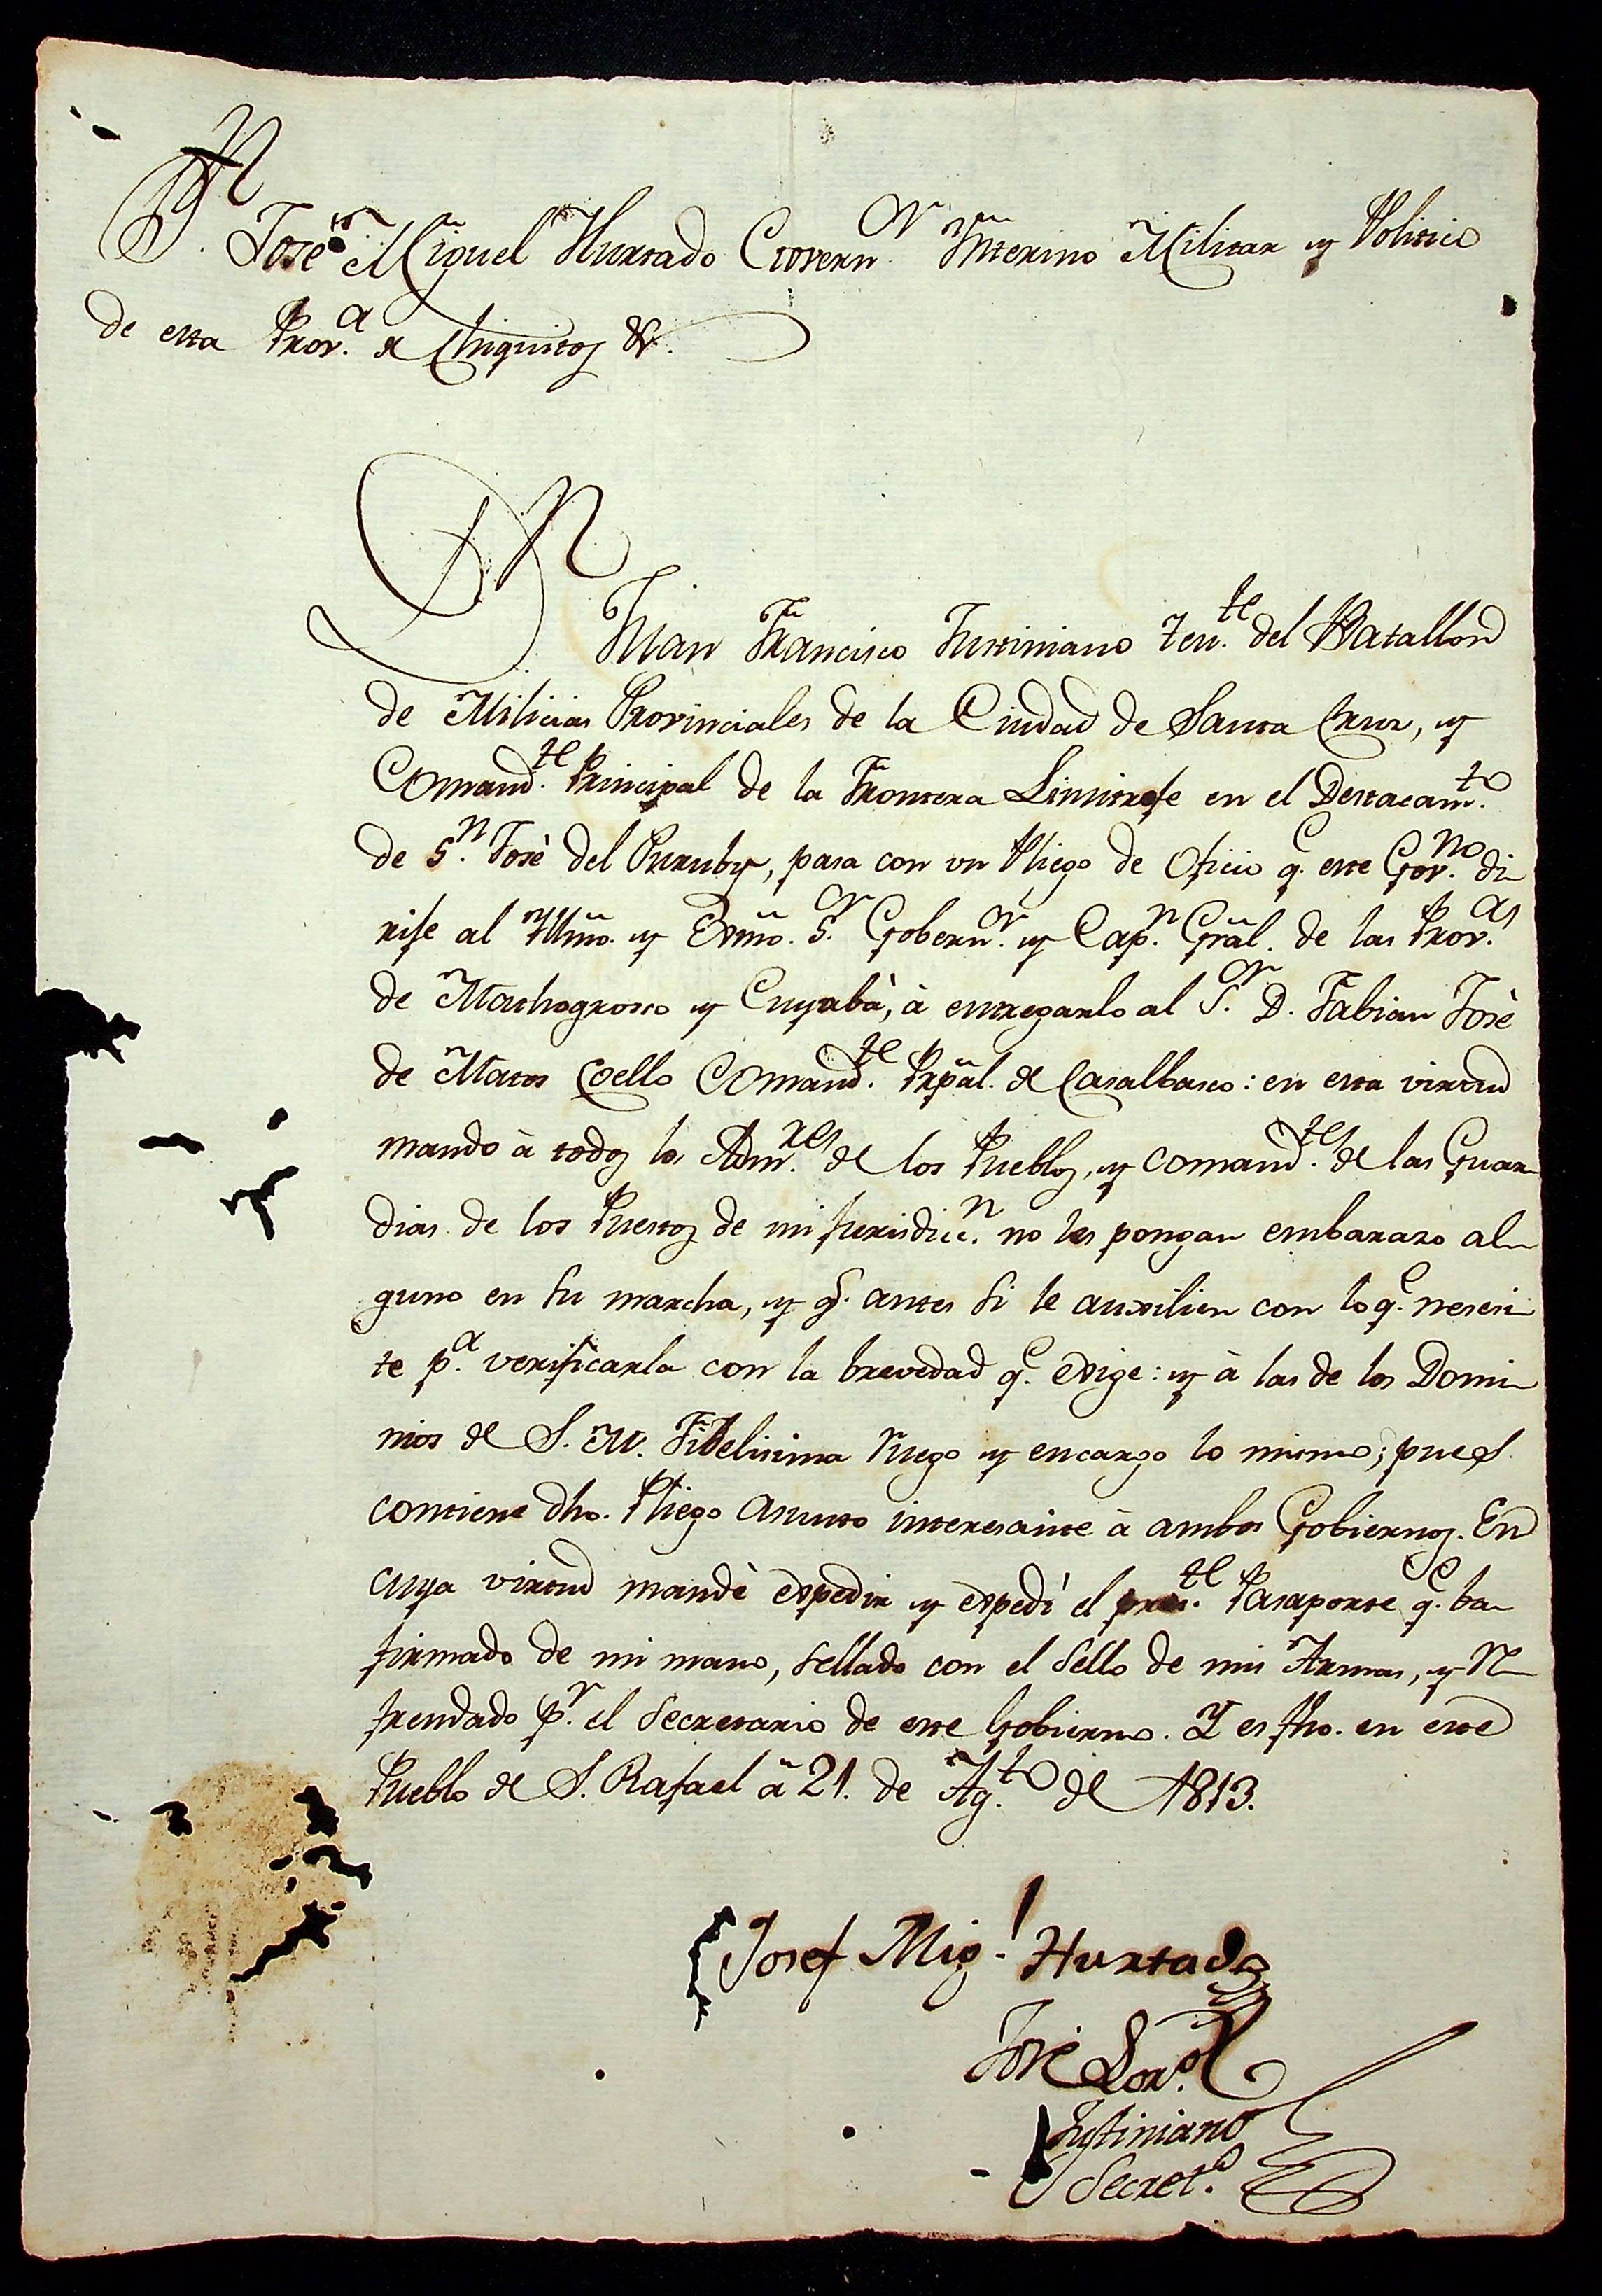 Dn. José Miguel Hurtado Governr. Ynterino Militar y Politico
de esta Prova. de Chiquitos &.
Dn.
Juan Francisco Justiniano Tente. del Batallon
de Milicias Provinciales de la Ciudad de Santa Cruz, y
Comandte. Principal de la Frontera Limitrofe en el Destacamto.
de Sn. José del Purubÿ, pasa con un Pliego de Oficio qe. este Govno. di-
rije al Yllmo. y Exmo. Sor. Gobernor. y Capn. Gral. de las Provas.
de Mathogrosso y Cuyabà, à entregarlo al Sor. D. Fabian Josè
de Matos Coello Comandte. Prpal. de Casalbasco: en esta virtud
mando à todos los Admres. de los Pueblos, y Comandtes. de las Guar-
dias de los Puestos de mi jurisdiccn. no les pongan embarazo al-
guno en su marcha, y qe. antes si le auxilien con lo qe. nesesi-
te pa. verificarla con la brevedad qe. exige: y à las de los Domi-
nios de S. M. Fidelisima ruego y encargo lo mismo; pues
contiene dho. Pliego asunto interesante à ambos Gobiernos. En
cuya virtud mandè expedir y expedi el preste. Pasaporte qe. ba
firmado de mi mano, sellado con el Sello de mis Armas, y re-
frendado pr. el Secretario de este Gobierno. Y es fho. en este
Pueblo de S. Rafael à 21. de Agto. de 1813.
Josef Migl. Hurtado
José Lorzo.
Justiniano
Secreto.